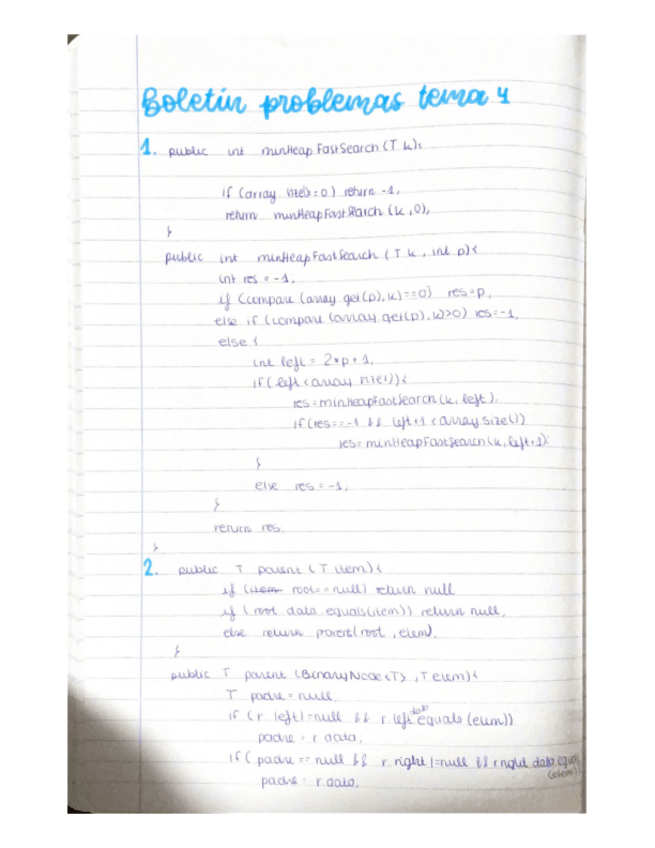 Boletín problemas tema 4
1. public int minHeapFastSearch (T k){
if (array.size()=0) return -1;
return minHeapFastSearch (k,0);
}
public int minHeapFastSearch (T k, int p){
int res = -1;
if (compare (array.get(p),k)==0) res=p;
else if (compare (array.get(p),k)>0) res=-1;
else {
int left = 2*p+1;
if (left<array.size()){
res=minHeapFastSearch (k, left);
if (res==-1 && left+1<array.size())
res= minHeapFastSearch(k,left+1);
}
else res=-1;
}
return res;
}
2. public T parent (T item){
if (item root==null) return null
if (root.data.equals(item)) return null;
else return parent(root, elem);
}
public T parent (BinaryNode<T>, T elem){
T padre = null;
if (r.left!=null && r.left.dato equals (elem))
padre = r.dato;
if (padre == null && r.right!=null && r.right.dato.equa
(elem)
padre = r.dato;